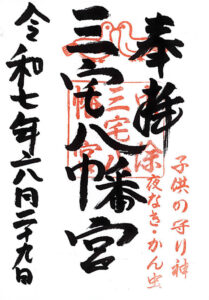 奉拝
子供の守り神
虫除
夜なき・かん虫
三宅八幡宮
三宅八幡宮
令和七年六月二十九日